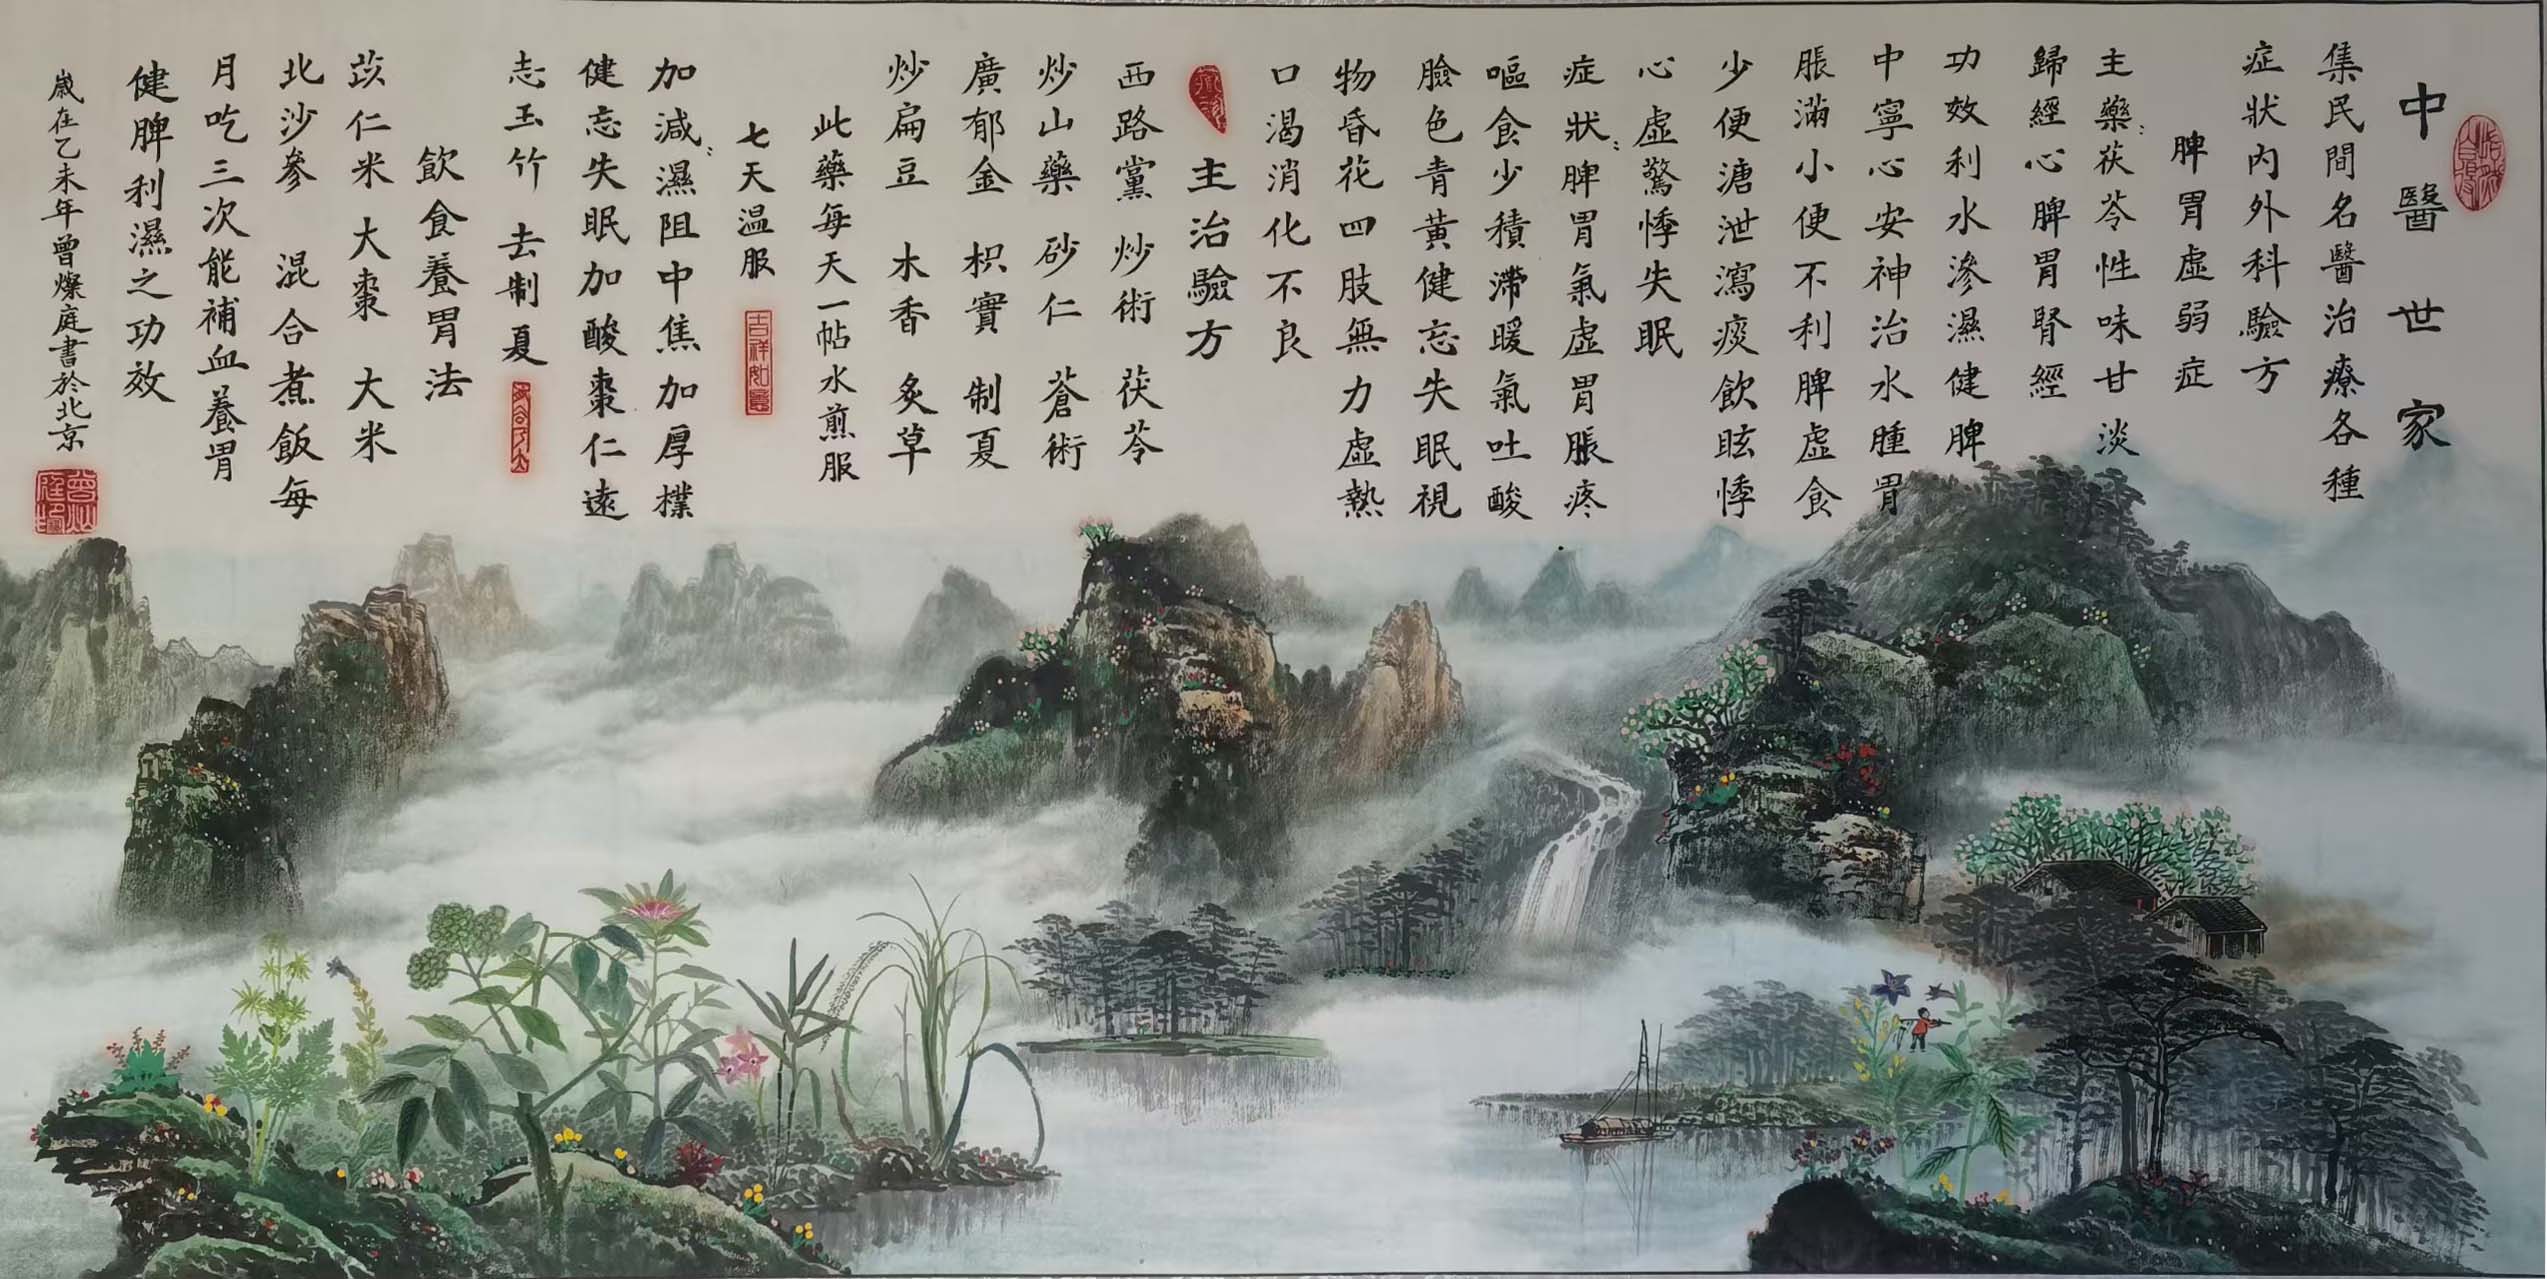 中醫世家
集民間名醫治療各種
症狀內外科驗方
脾胃虛弱症
主藥：茯苓性味甘淡
歸經心脾胃腎經
功效利水滲濕健脾
中寧心安神治水腫胃
脹滿小便不利脾虛食
少便溏泄瀉痰飲眩悸
心虛驚悸失眠
症狀：脾胃氣虛胃脹疼
嘔食少積滯暖氣吐酸
臉色青黃健忘失眠視
物昏花四肢無力虛熱
口渴消化不良
主治驗方
西路黨 炒術 茯苓
炒山藥 砂仁 蒼術
廣郁金 枳實 制夏
炒扁豆 木香 炙草
此藥每天一帖水煎服
七天温服
吉祥如意
加減：濕阻中焦加厚樸
健忘失眠加酸棗仁遠
志玉竹 去制夏
飲食養胃法
苡仁米 大棗 大米
北沙參 混合煮飯每
月吃三次能補血養胃
健脾利濕之功效
歲在乙未年曾燦庭書於北京